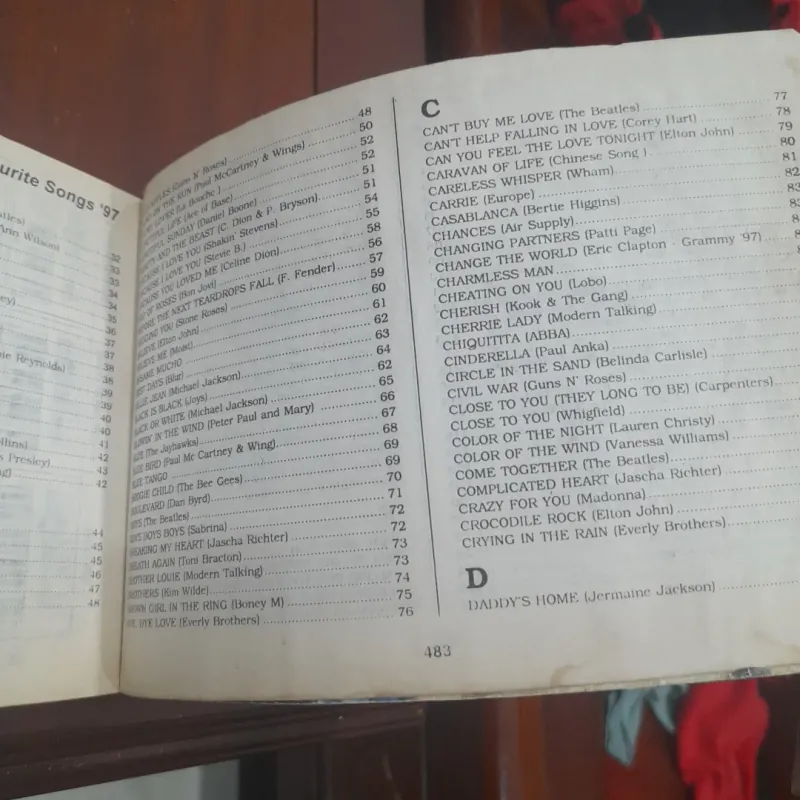 urite Songs '97
Ann Wilson)
32
33
33
34
34
35
36
37
37
Reynolds) 38
38
39
39
40
40
41
Presley) 42
43
42
44
45
45
46
47
48
(Guns N' Roses) 48
THE RUN (Paul McCartney & Wings) 50
(La Bouche) 52
LIFE (Ace of Base) 52
SUNDAY (Daniel Boone) 51
AND THE BEAST (C. Dion & P. Bryson) 51
I LOVE YOU (Shakin' Stevens) 54
I LOVE YOU (Stevie B.) 55
YOU LOVED ME (Celine Dion) 58
OF ROSES (Bon Jovi) 56
THE NEXT TEARDROPS FALL (F. Fender) 57
YOU (Stone Roses) 59
(Elton John) 60
ME 61
MUCHO 62
DAYS (Blur) 63
JEAN (Michael Jackson) 64
IS BLACK (Joys) 62
OR WHITE (Michael Jackson) 65
IN THE WIND (Peter Paul and Mary) 66
(The Jayhawks) 67
BIRD (Paul Mc Cartney & Wing) 68
TANGO 69
CHILD (The Bee Gees) 69
BOULEVARD (Dan Byrd) 70
(The Beatles) 71
BOYS BOYS (Sabrina) 72
MY HEART (Jascha Richter) 72
AGAIN (Toni Bracton) 73
BROTHER LOUIE (Modern Talking) 73
BROTHERS (Kim Wilde) 74
BROWN GIRL IN THE RING (Boney M) 75
BYE LOVE (Everly Brothers) 76
C
CAN'T BUY ME LOVE (The Beatles) 77
CAN'T HELP FALLING IN LOVE (Corey Hart) 78
CAN YOU FEEL THE LOVE TONIGHT (Elton John) 79
CARAVAN OF LIFE (Chinese Song ) 80
CARELESS WHISPER (Wham) 81
CARRIE (Europe) 82
CASABLANCA (Bertie Higgins)
CHANCES (Air Supply)
CHANGING PARTNERS (Patti Page)
CHANGE THE WORLD (Eric Clapton - Grammy '97)
CHARMLESS MAN
CHEATING ON YOU (Lobo)
CHERISH (Kook & The Gang)
CHERRIE LADY (Modern Talking)
CHIQUTITA (ABBA)
CINDERELLA (Paul Anka)
CIRCLE IN THE SAND (Belinda Carlisle)
CIVIL WAR (Guns N' Roses)
CLOSE TO YOU (THEY LONG TO BE) (Carpenters)
CLOSE TO YOU (Whigfield)
COLOR OF THE NIGHT (Lauren Christy)
COLOR OF THE WIND (Vanessa Williams)
COME TOGETHER (The Beatles)
COMPLICATED HEART (Jascha Richter)
CRAZY FOR YOU (Madonna)
CROCODILE ROCK (Elton John)
CRYING IN THE RAIN (Everly Brothers)
D
DADDY'S HOME (Jermaine Jackson)
483